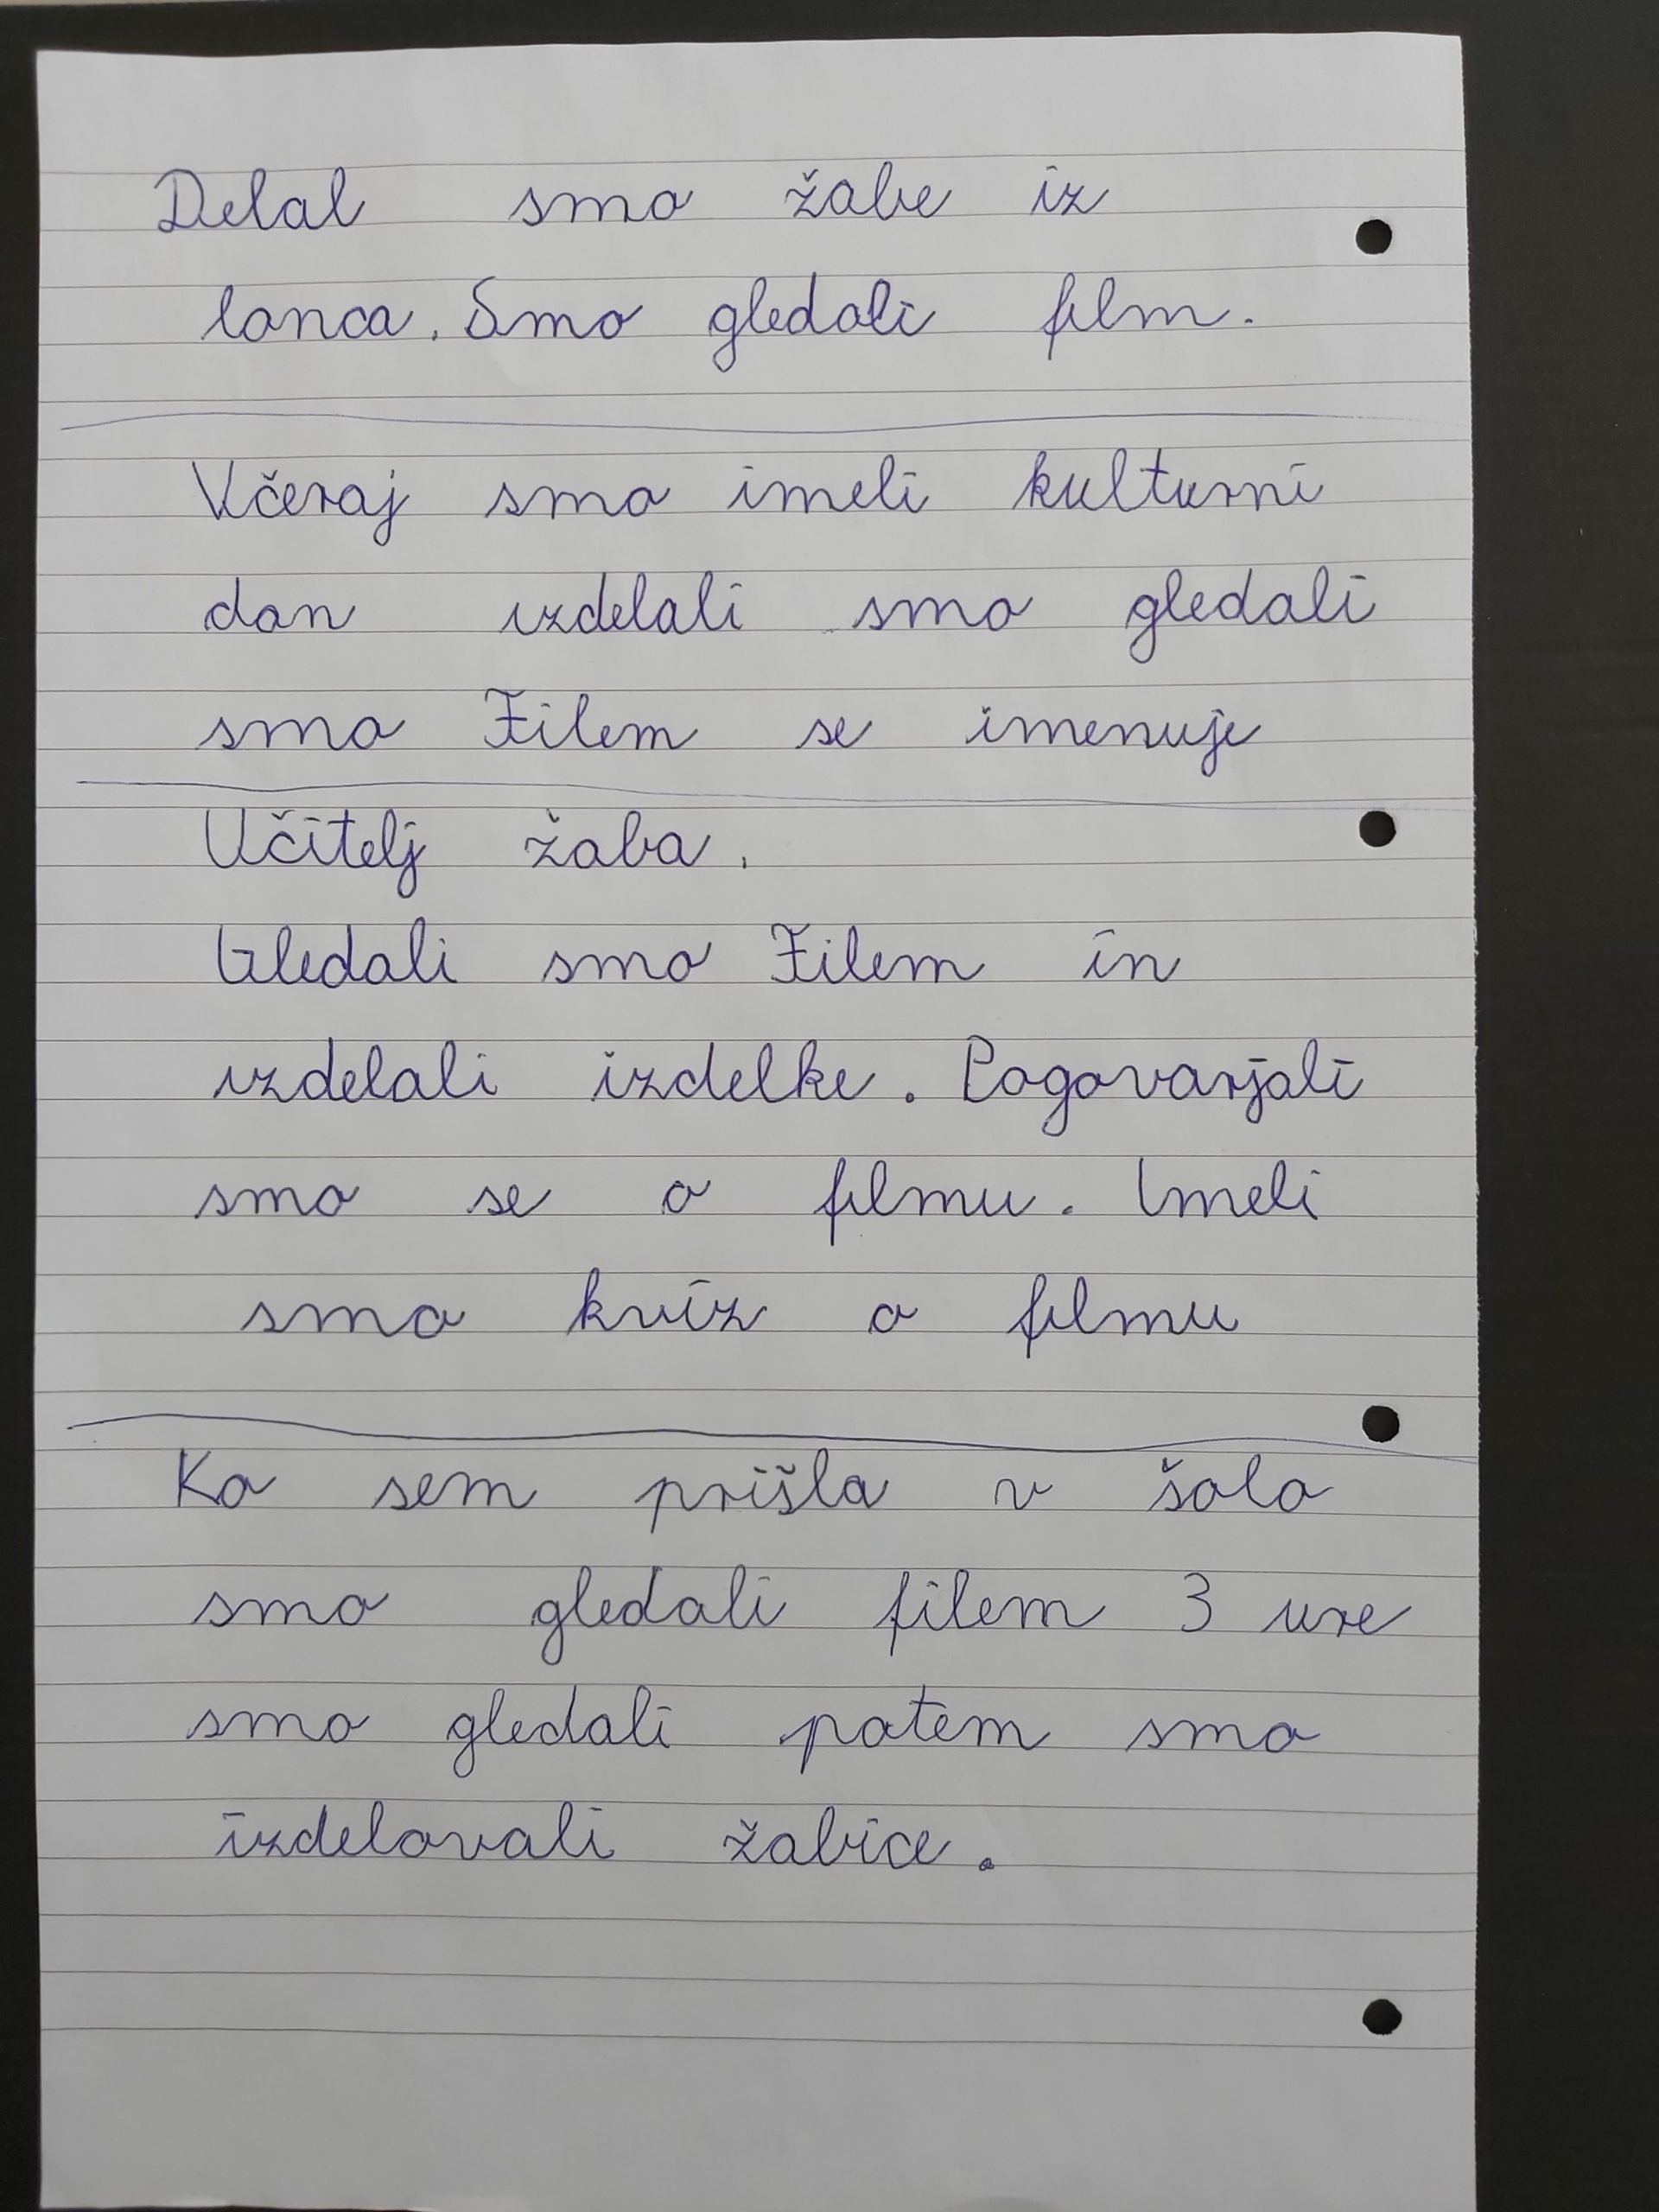 Delal smo žabe iz
lonca. Smo gledali film.
Včeraj smo imeli kulturni
dan izdelali smo gledali
smo Filem se imenuje
Učitelj žaba.
Gledali smo Filem in
izdelali izdelke. Pogovarjali
smo se o filmu. Imeli
smo kviz o filmu
Ko sem prišla v šolo
smo gledali filem 3 ure
smo gledali potem smo
izdelovali žabice.